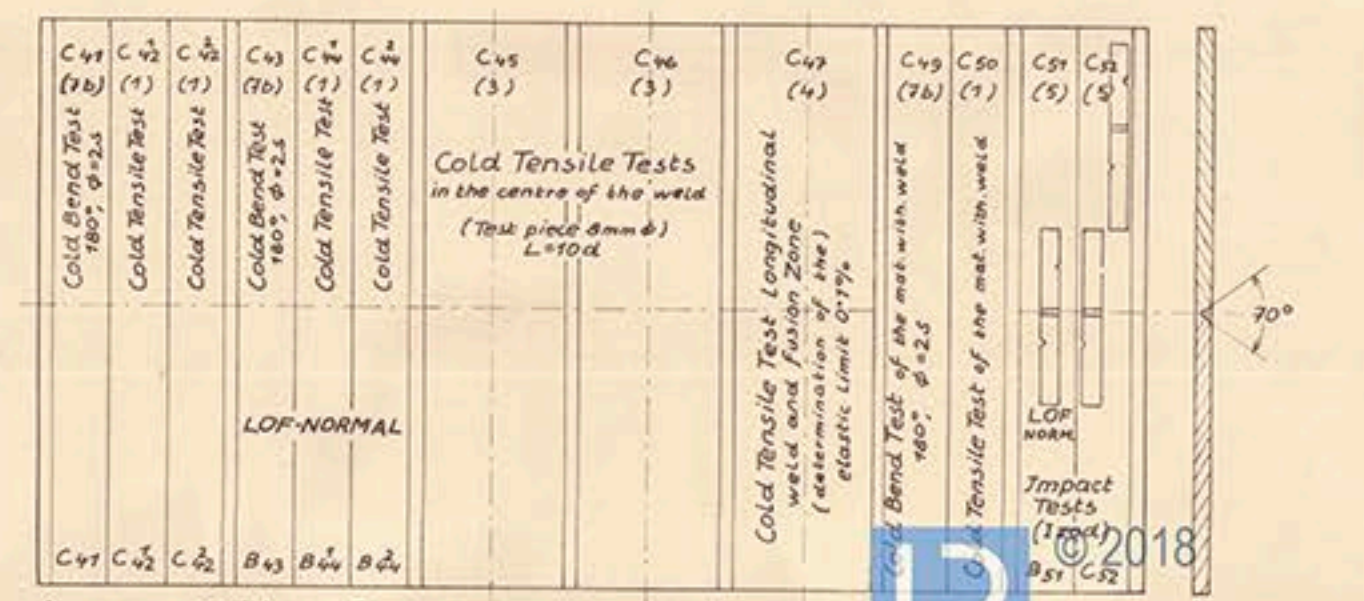 C41
(7b)
Cold Bend Test
180°, ϕ=2s
C41
C 1/42
(1)
Cold Tensile Test
C 1/42
C 2/42
(1)
Cold Tensile Test
C 2/42
C43
(7b)
Cold Bend Test
180°, ϕ=2s
B43
C 1/44
(1)
Cold Tensile Test
B 1/44
C 2/44
(1)
Cold Tensile Test
B 2/44
LOF-NORMAL
C45
(3)
C46
(3)
Cold Tensile Tests
in the centre of the weld
(Test piece 8mm ϕ)
L=10d
C47
(4)
Cold Tensile Test Longitudinal
weld and Fusion Zone
(determination of the)
elastic Limit 0·1%
C49
(7b)
Bend Test of the mat. with weld
180°, ϕ=2s
C50
(1)
Tensile Test of the mat. with weld
C51
(5)
C52
(5)
LOF
NORM.
Impact
Tests
(Izod)
B51
C52
70°
© 2018